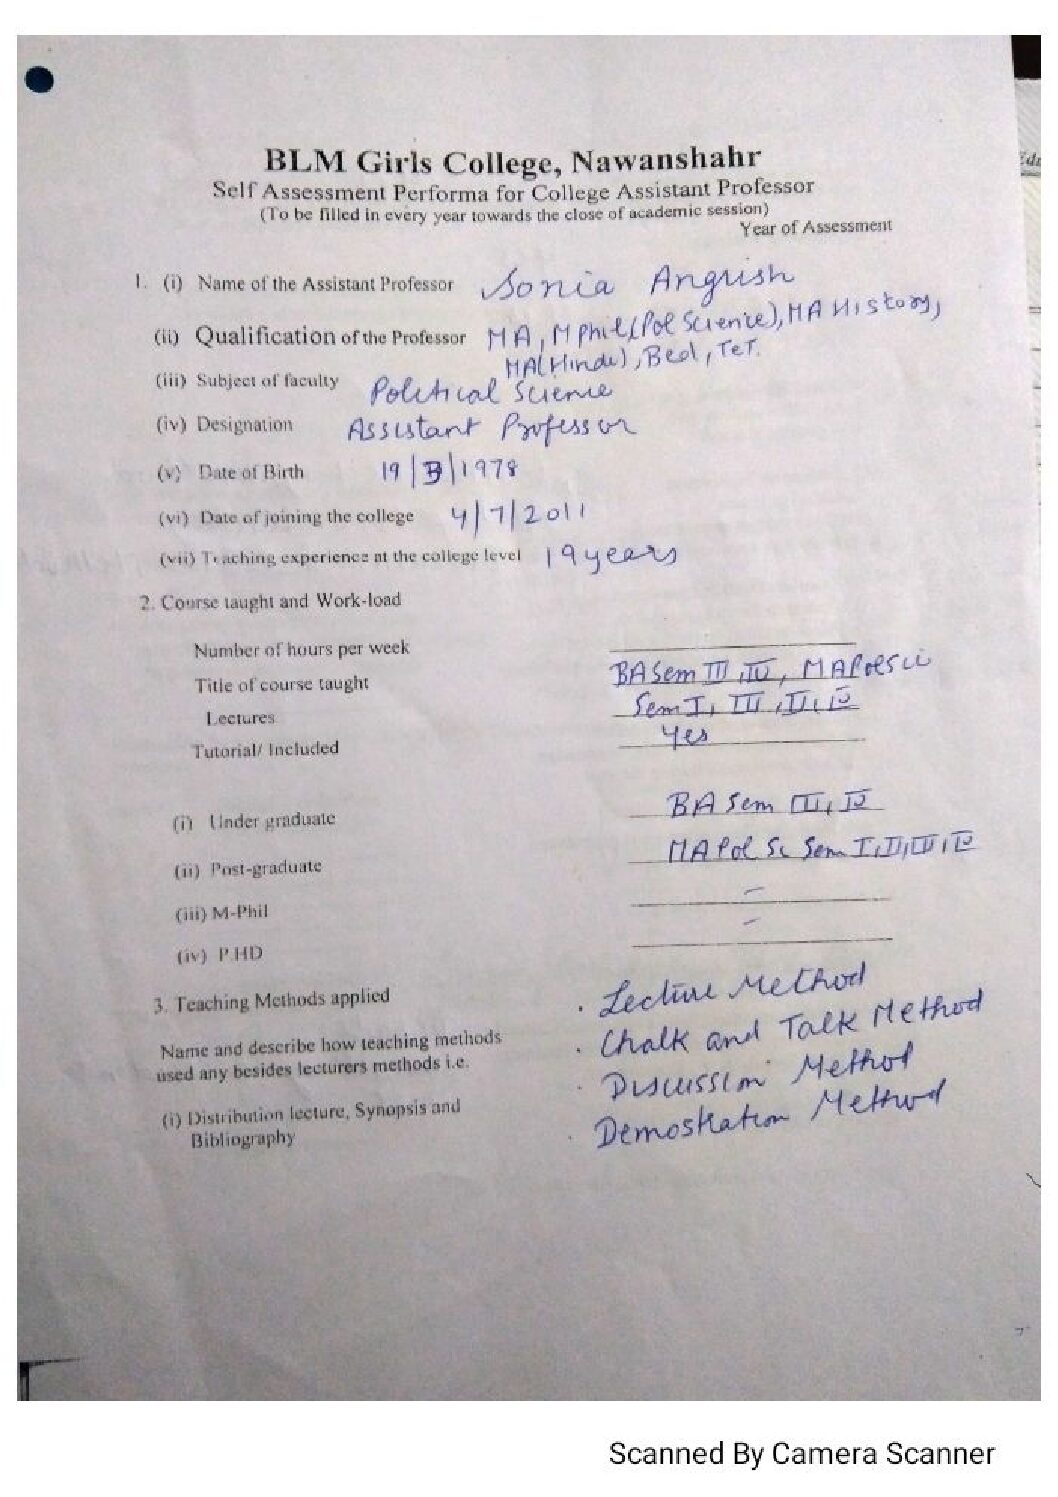 BLM Girls College, Nawanshahr
Self Assessment Performa for College Assistant Professor
(To be filled in every year towards the close of academic session)
Year of Assessment
1. (i) Name of the Assistant Professor Sonia Angrish
(ii) Qualification of the Professor MA, MPhil(Pol Science), MA History,
MA(Hindi), Bed, TeT.
(iii) Subject of faculty Political Science
(iv) Designation Assistant Professor
(v) Date of Birth 19/3/1978
(vi) Date of joining the college 4/7/2011
(vii) Teaching experience at the college level 19 years
2. Course taught and Work-load
Number of hours per week
Title of course taught BA Sem III, IV, MA Pol Sci
Lectures Sem I, III, II, IV
Tutorial/ Included Yes
(i) Under graduate BA Sem III, IV
(ii) Post-graduate MA Pol Sc Sem I, II, III, IV
(iii) M-Phil -
(iv) P.HD -
3. Teaching Methods applied . Lecture Method
Name and describe how teaching methods . Chalk and Talk Method
used any besides lecturers methods i.e. . Discussion Method
(i) Distribution lecture, Synopsis and . Demostration Method
Bibliography
Scanned By Camera Scanner